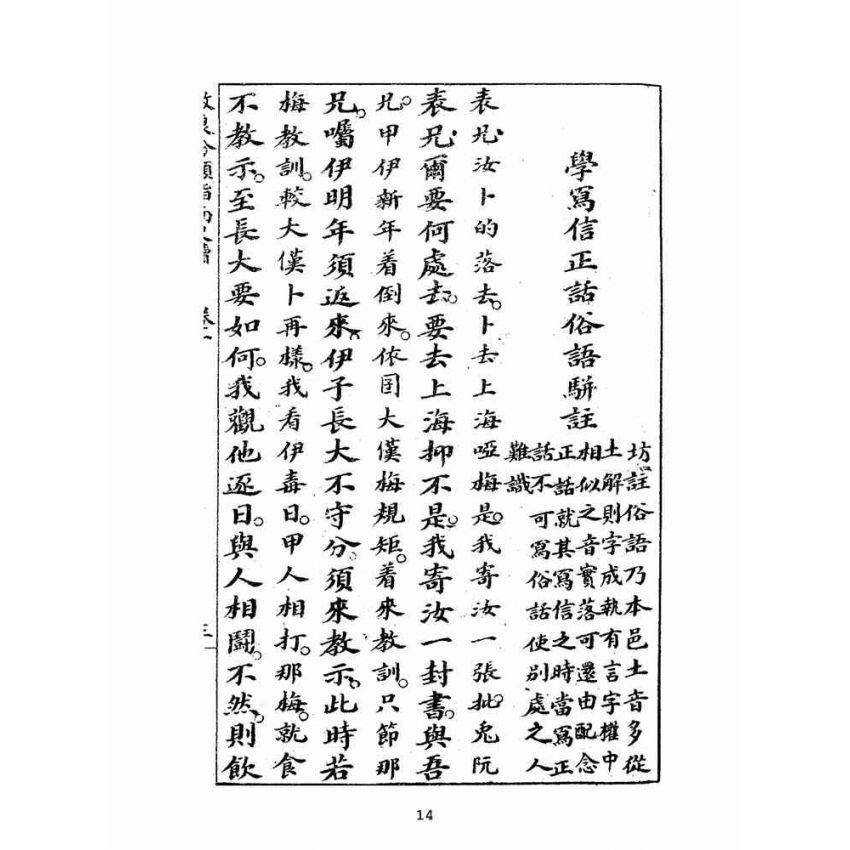 學寫信正話俗語駢註
坊註俗語乃本邑土音多從
土解則字成執有言字權中
相似之音實落可還由配念
正話就其寫信之時當寫正
話不可寫俗話使別處之人
難識
表兄汝卜的落去。卜去上海啞梅是。我寄汝一張批。兔阮
表兄爾要何處去。要去上海抑不是。我寄汝一封書。與吾
兄。甲伊新年着倒來。依囝大漢梅規矩。着來教訓。只節那
兄。囑伊明年須返來。伊子長大不守分。須來教示。此時若
梅教訓。較大漢卜再樣。我看伊毒日。甲人相打。那梅。就食
不教示。至長大要如何。我觀他逐日。與人相鬪。不然。則飲
14